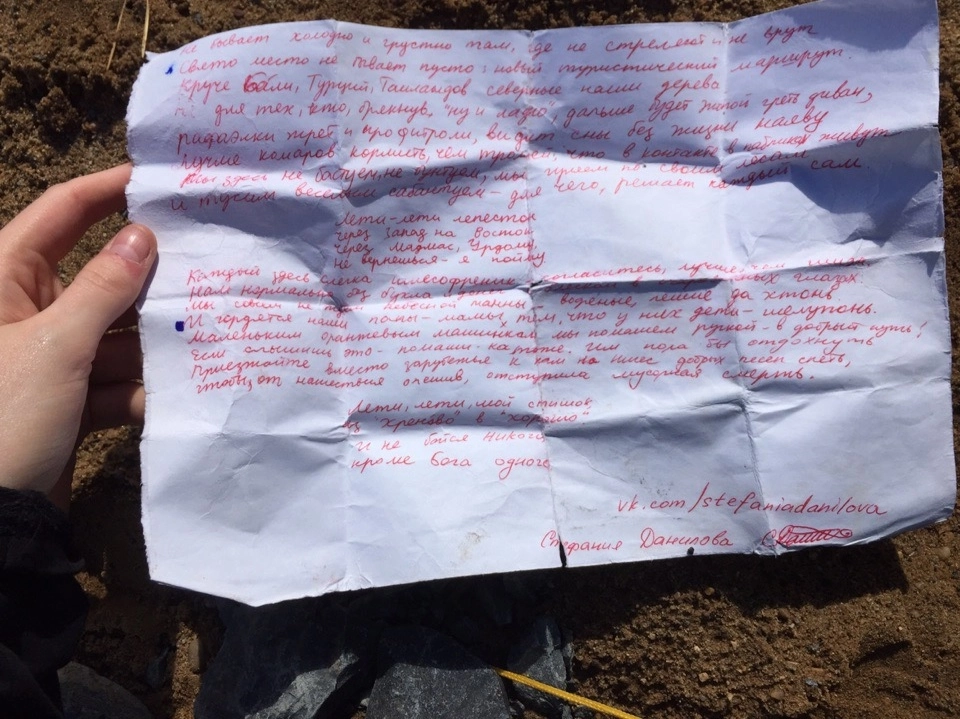 Не бывает холодно и грустно там, где не стреляют и не врут
Свято место не бывает пусто: новый туристический маршрут.
Круче Бали, Турций, Таиландов северные наши дерева
Не для тех, кто, брякнув, "ну и ладно" дальше будет жопой греть диван,
жрет и профитроли, видит сны без жизни наяву
Лучше комаров кормить, чем троллей, что в контакте в пабликах живут
Мы здесь не бастуем, не бунтуем, мы гуляем по своим лесам
и тусим веселым сабантуем - для чего, решает каждый сам
Лети-лети лепесток
через Запад на Восток
через Мадмас, Урдому,
не вернешься - я пойму
Каждый здесь слегка шиесофреник согласитесь, лучше, чем
Нам нормально без бухла
Мы совсем не манны водяные, лешие да хтонь
И гордятся наши папы-мамы, тем, что у них дети - шелупонь.
Маленьким оранжевым машинкам мы помашем ручкой - в добрый путь!
Чем пора бы отдохнуть
Приезжайте вместо зарубежья к нам на Шиес добрых песен спеть,
чтобы, от нашествия опешив, отступила мусорная смерть.
Лети, лети, мой стишок
из "хреново" в "хорошо"
и не бойся никого,
кроме Бога одного
vk.com/stefaniadanilova
Стефания Данилова